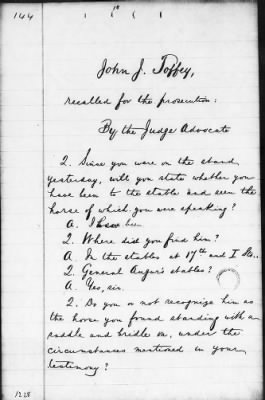 144
John J. Toffey,
recalled for the prosecution:
By the Judge Advocate
Q. Since you were on the stand
yesterday, will you state whether you
have been to the stable and seen the
horse of which you were speaking?
A. I have been
Q. Where did you find him?
A. In the stables at 17th and I Sts..
Q. General Augur's stables?
A. Yes, sir.
Q. Do you or not recognize him as
the horse you found standing with a
saddle and bridle on, under the
circumstances mentioned in your
testimony?